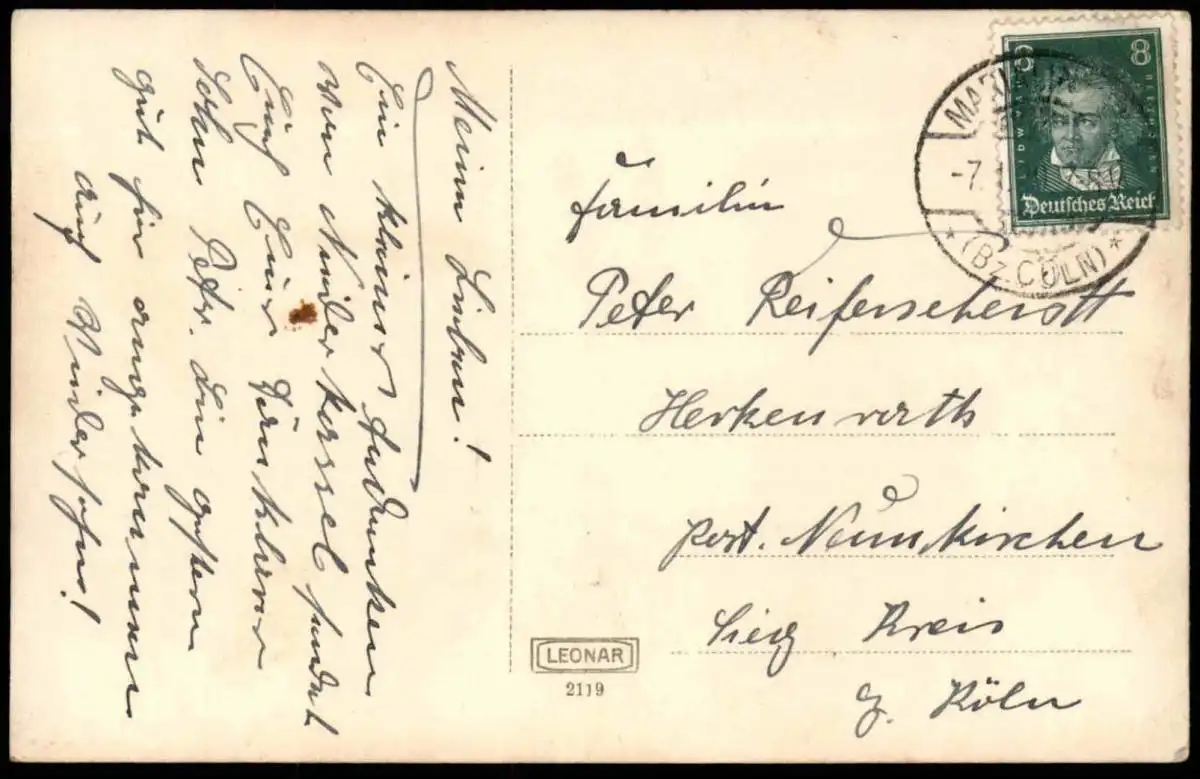 Meine Lieben!
Ein kleines Gedenken
von Niederkassel sendet
Euch Euer dankbarer
Sohn Petr. Bin gestern
gut hir angekommen
Auf Wiedersehn!
Familie
Peter Reiferscheidt
Herkenrath
Post. Neunkirchen
Sieg Kreis
b. Köln
8 8
LUDWIG VAN
Deutsches Reich
-7.
(Bz. CÖLN)
LEONAR
2119